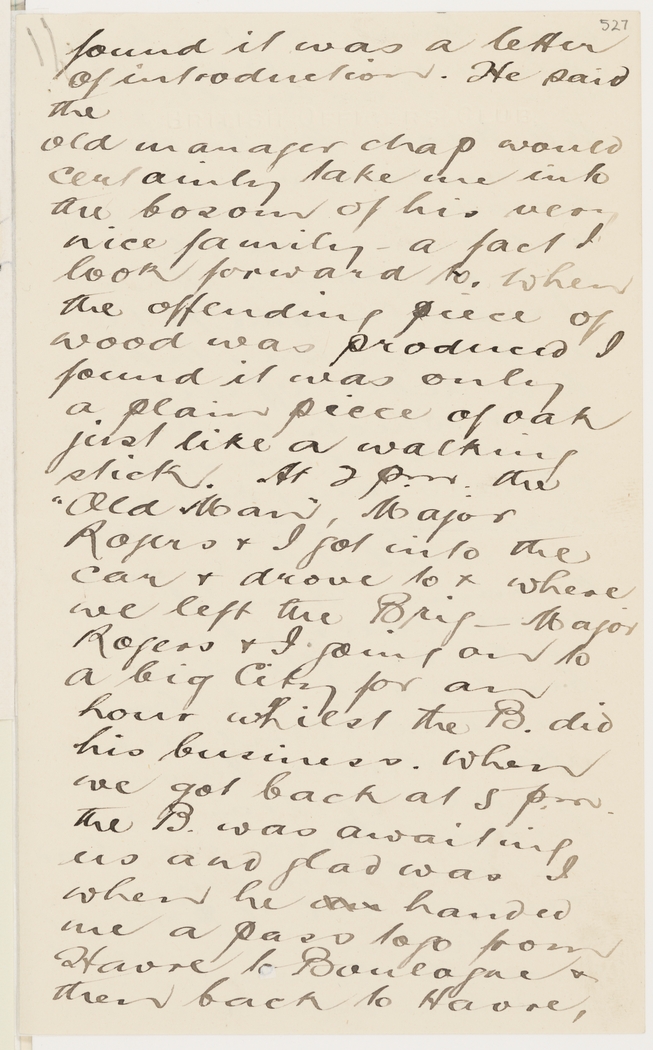 527
11/
found it was a letter
of introduction. He said
the
old manager chap would
certainly take me into
the bosom of his very
nice family - a fact I
look forward to. When
the offending piece of
wood was produced I
found it was only
a plain piece of oak
just like a walking
stick. At 2 p.m. the
"Old Man", Major
Rogers & I got into the
car & drove to x where
we left the Brig - Major
Rogers & I going on to
a big City for an
hour whilst the B. did
his business. When
we got back at 5 p.m.
the B. was awaiting
us and glad was I
when he handed
me a pass to go from
Havre to Boulogne &
then back to Havre,